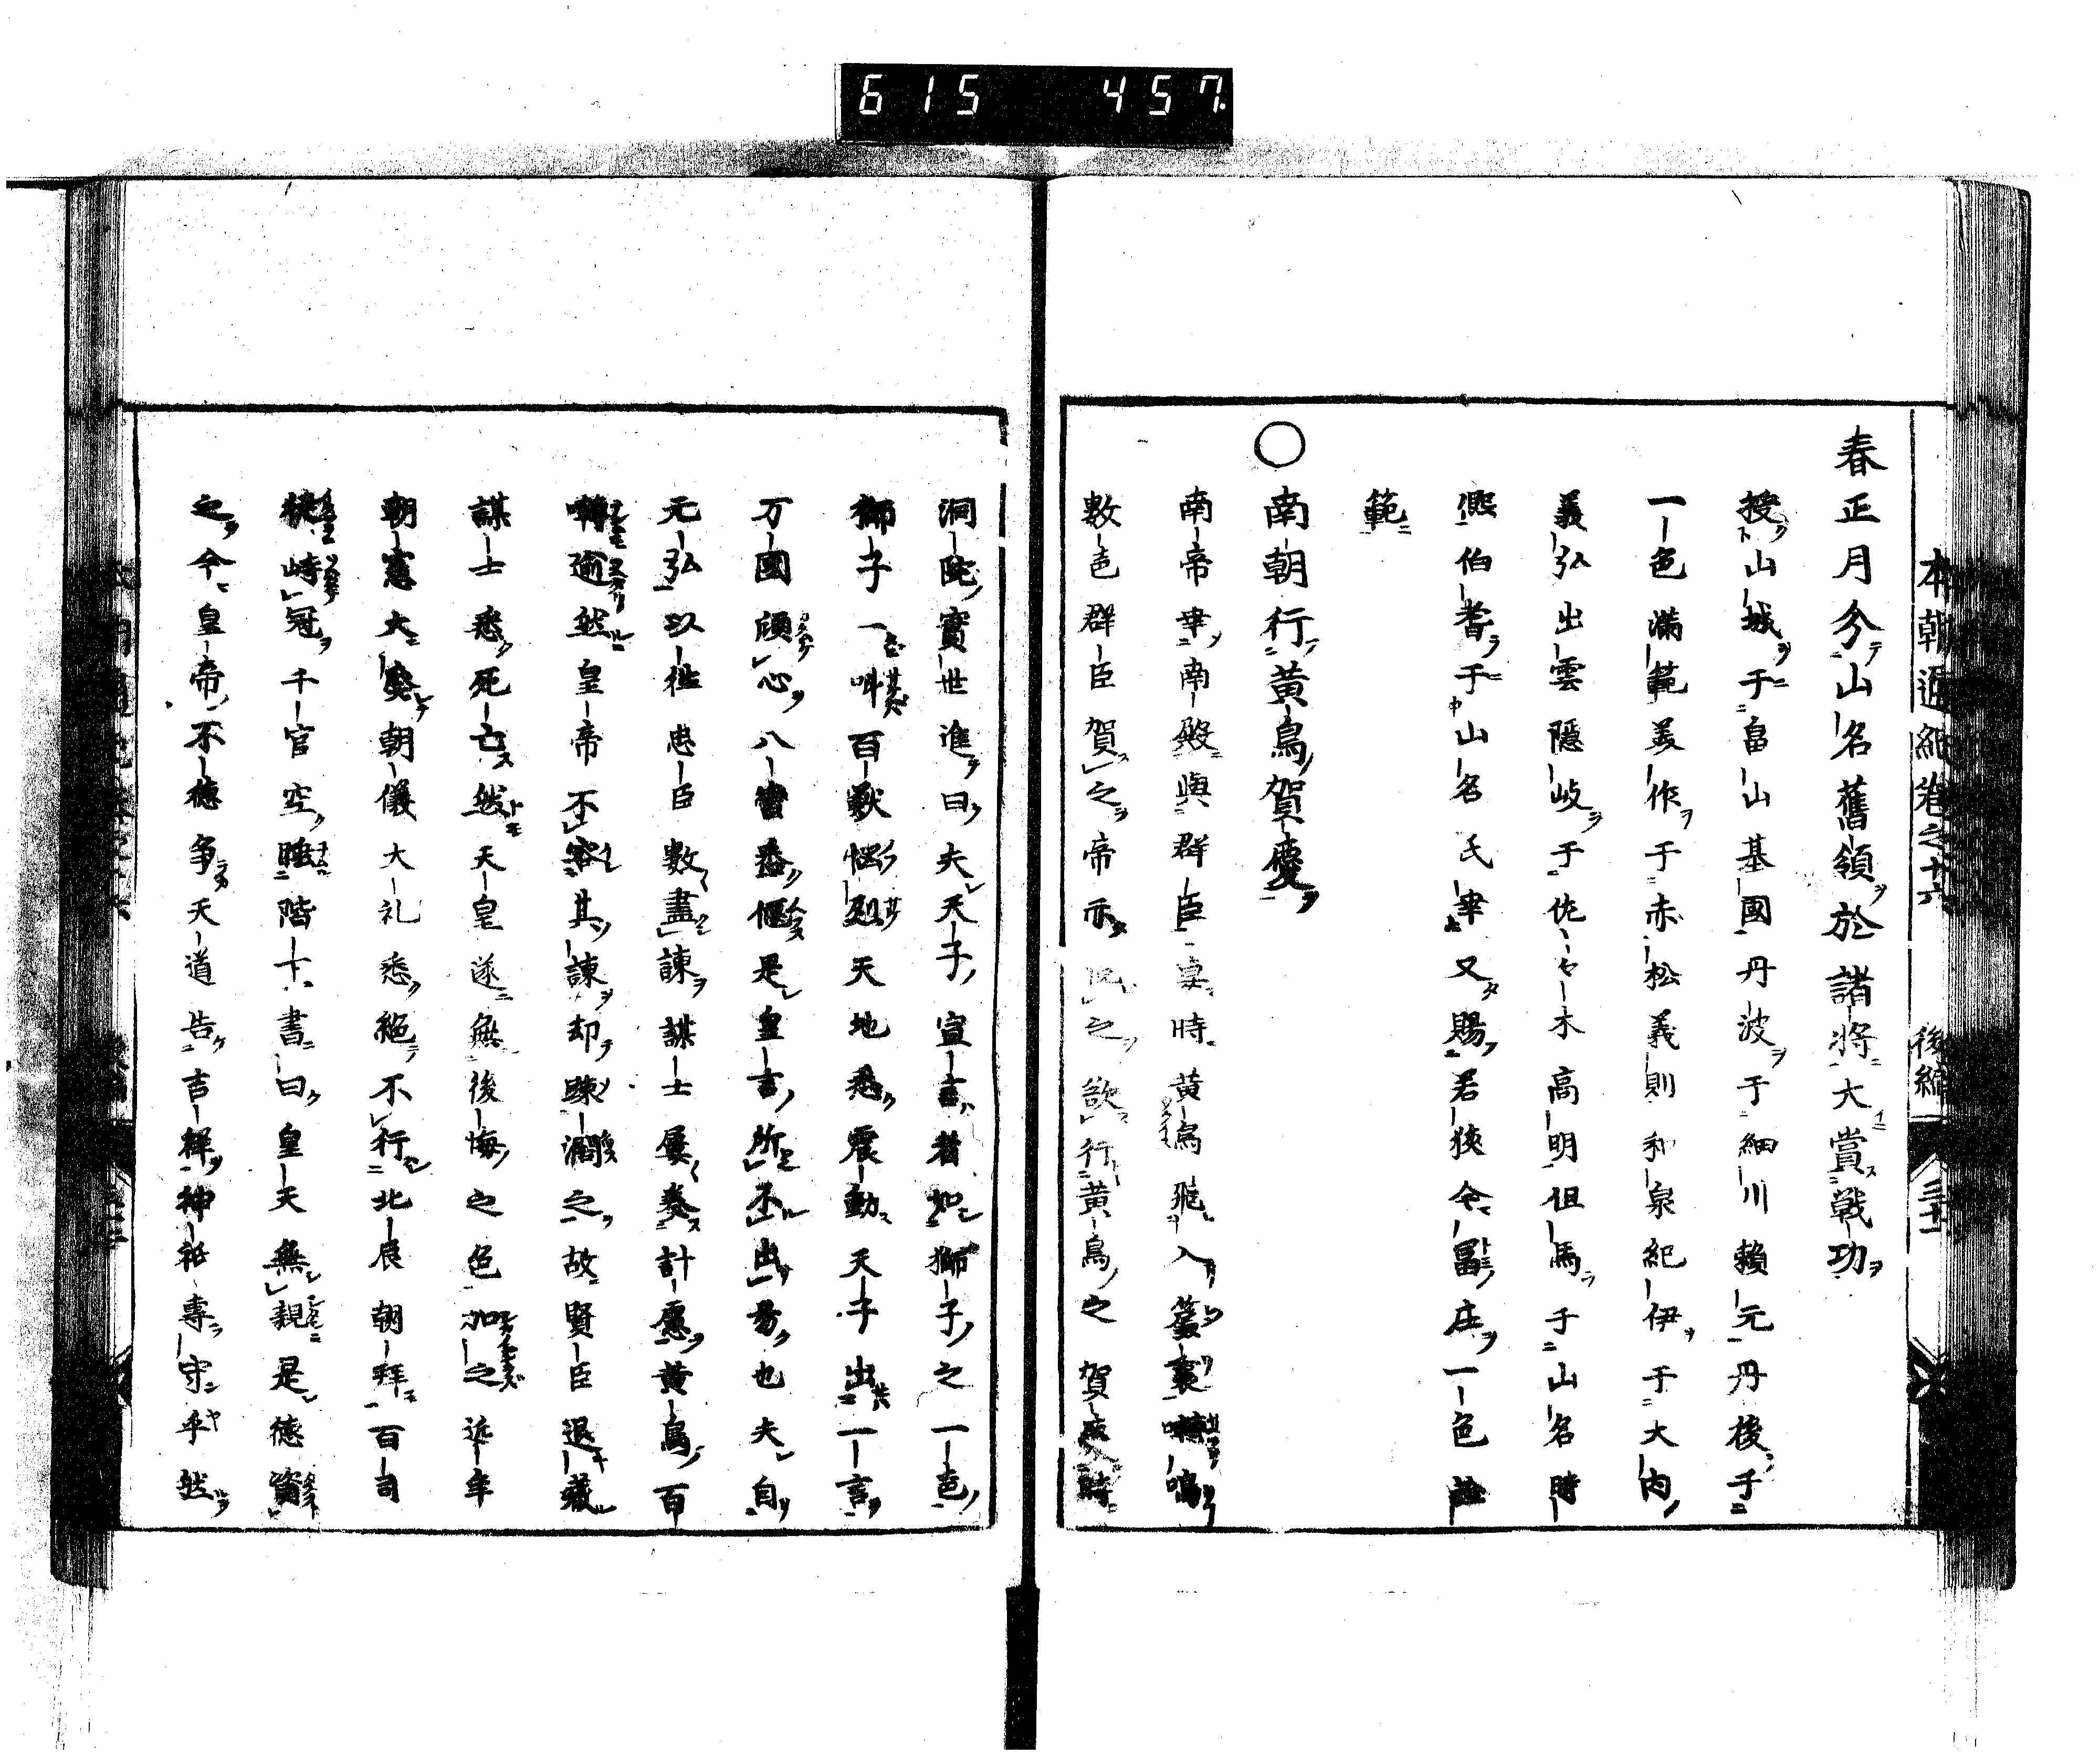 615 457
本朝通紀卷之十六 後編 三十二
春正月分山名舊領於諸將大賞戰功
授山城于畠山基國丹波于細川賴元丹後于
一色滿範美作于赤松義則和泉紀伊于大内
義弘出雲隱岐于佐々木高明但馬于山名時
熈伯耆于山名氏幸又賜若狹今冨庄一色詮
範
○南朝行黄鳥賀慶
南帝幸南殿與群臣宴時黄鳥飛入簾裏囀鳴
數色群臣賀之帝亦 之欲行黄鳥之賀 時
洞院實世進曰夫天子宣言者如獅子之一色
獅子一呌百獸惱 天地悉震動天子出一言
万國傾心八蠻悉偃是皇言所丕出易也夫自
元弘以徃忠臣數盡諫謀士屡奏計愿黄鳥百
囀逾然皇帝不容其諫却踈 之故賢臣退藏
謀士悉死亡然天皇遂無後悔之色加之近年
朝憲大癈朝儀大礼悉絕不行北辰朝拜百司
 峙冠千官空 階十書曰皇天無親是德 
之今皇帝不德争天道告吉祥神祇專守乎然